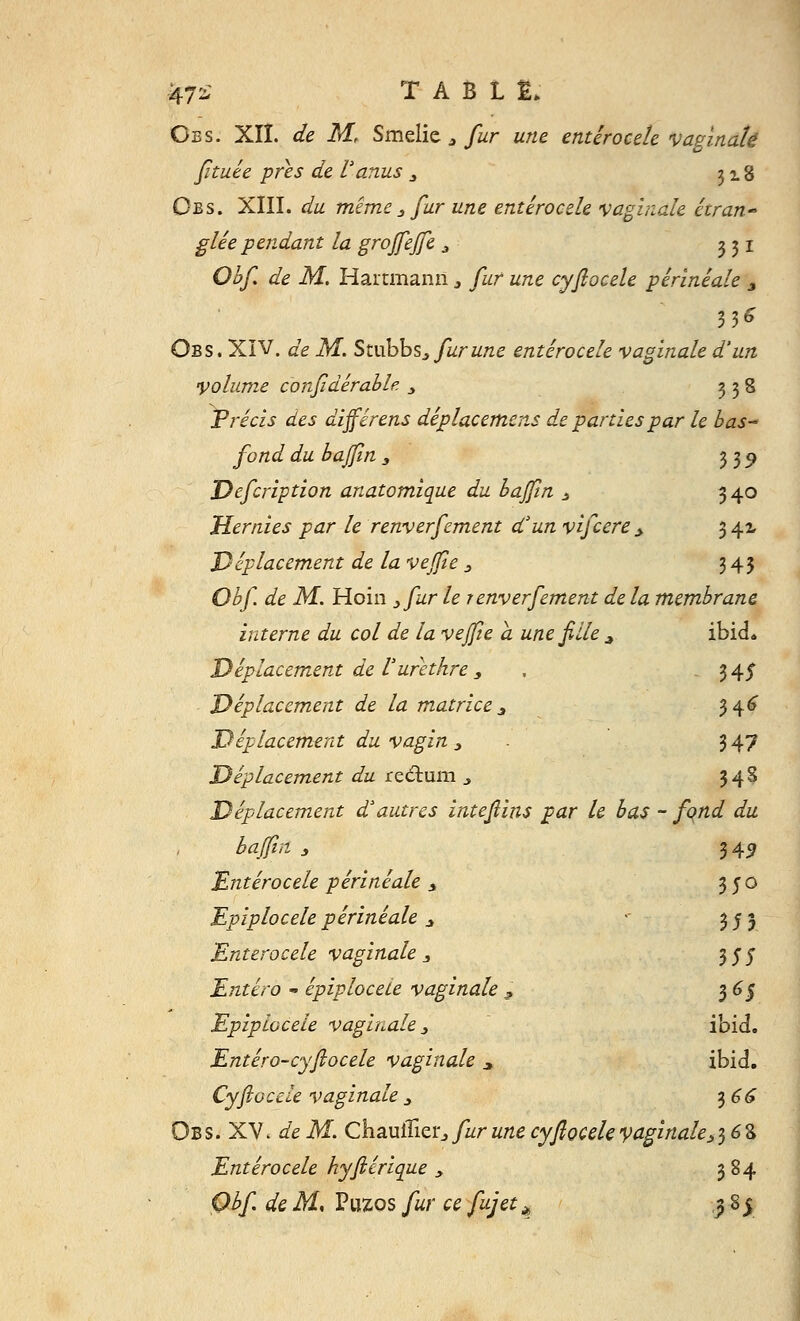 472 TABLE.
OBS. XII. de M. Smelie, ſur une entérocele vaginale
ſituée près de l'anus, 328
OBS. XIII. du même, ſur une entérocele vaginale étran-
glée pendant la groſſeſſe, 331
Obſ. de M. Hartmann, ſur une cyſtocele périnéale,
336
OBS. XIV. de M. Stubbs, ſur une entérocele vaginale d'un
volume conſidérable, 338
Précis des différens déplacemens de parties par le bas-
fond du baſſin, 339
Deſcription anatomique du baſſin, 340
Hernies par le renverſement d'un viſcere, 342
Déplacement de la veſſie, 343
Obſ. de M. Hoin, ſur le renverſement de la membrane
interne du col de la veſſie à une fille, ibid.
Déplacement de l'urèthre, 345
Déplacement de la matrice, 346
Déplacement du vagin, 347
Déplacement du rectum, 348
Déplacement d'autres inteſtins par le bas-fond du
baſſin, 349
Entérocele périnéale, 350
Epiplocele périnéale, 353
Enterocele vaginale, 355
Entéro-épiplocele vaginale, 365
Epiplocele vaginale, ibid.
Entéro-cyſtocele vaginale, ibid.
Cyſtocele vaginale, 366
OBS. XV. de M. Chauſſier, ſur une cyſtocele vaginale, 368
Entérocele hyſtérique, 384
Obſ. de M. Puzos ſur ce ſujet, 385